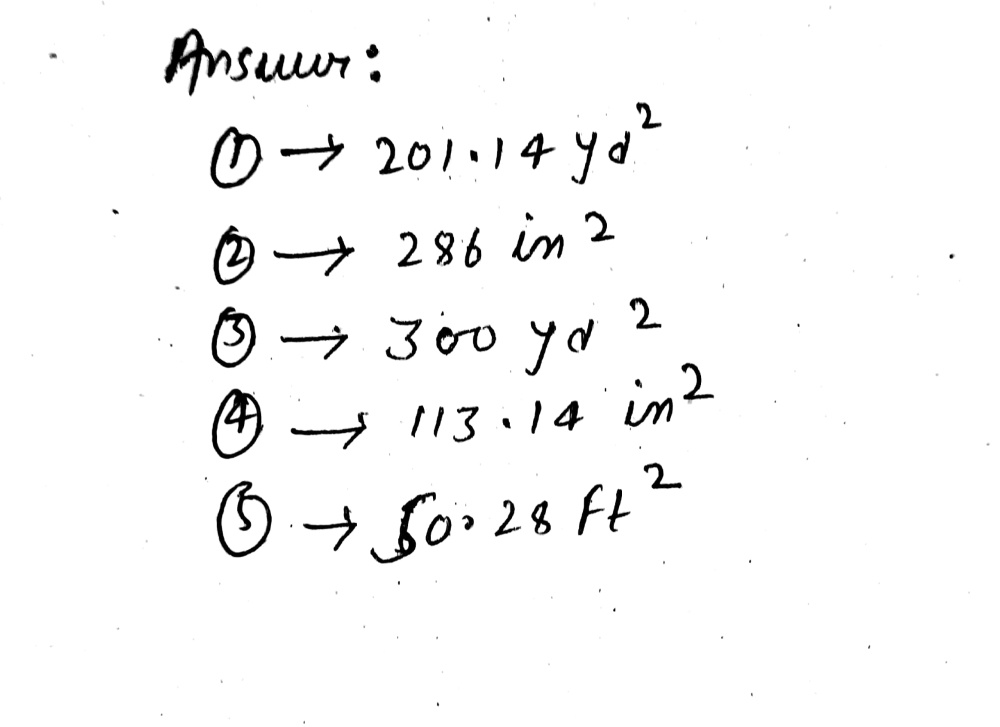 Answer:
① → 201.14 yd²
② → 286 in²
③ → 300 yd²
④ → 113.14 in²
⑤ → 50.28 ft²